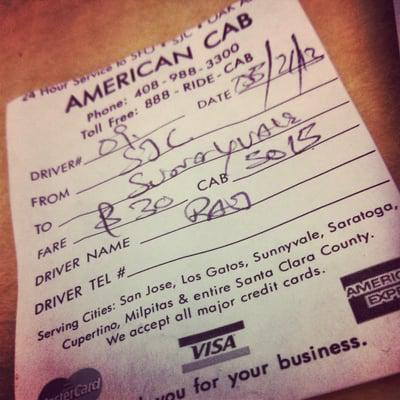 24 Hour Service to SFO • SJC • OAK
AMERICAN CAB
Phone: 408-988-3300
Toll Free: 888-RIDE-CAB
DRIVER# 09. DATE /2/13
FROM SJC
TO Sunnyvale
FARE $30 CAB 5015
DRIVER NAME RAJ
DRIVER TEL #
Serving Cities: San Jose, Los Gatos, Sunnyvale, Saratoga,
Cupertino, Milpitas & entire Santa Clara County.
We accept all major credit cards.
MasterCard VISA AMERIC
EXP
you for your business.